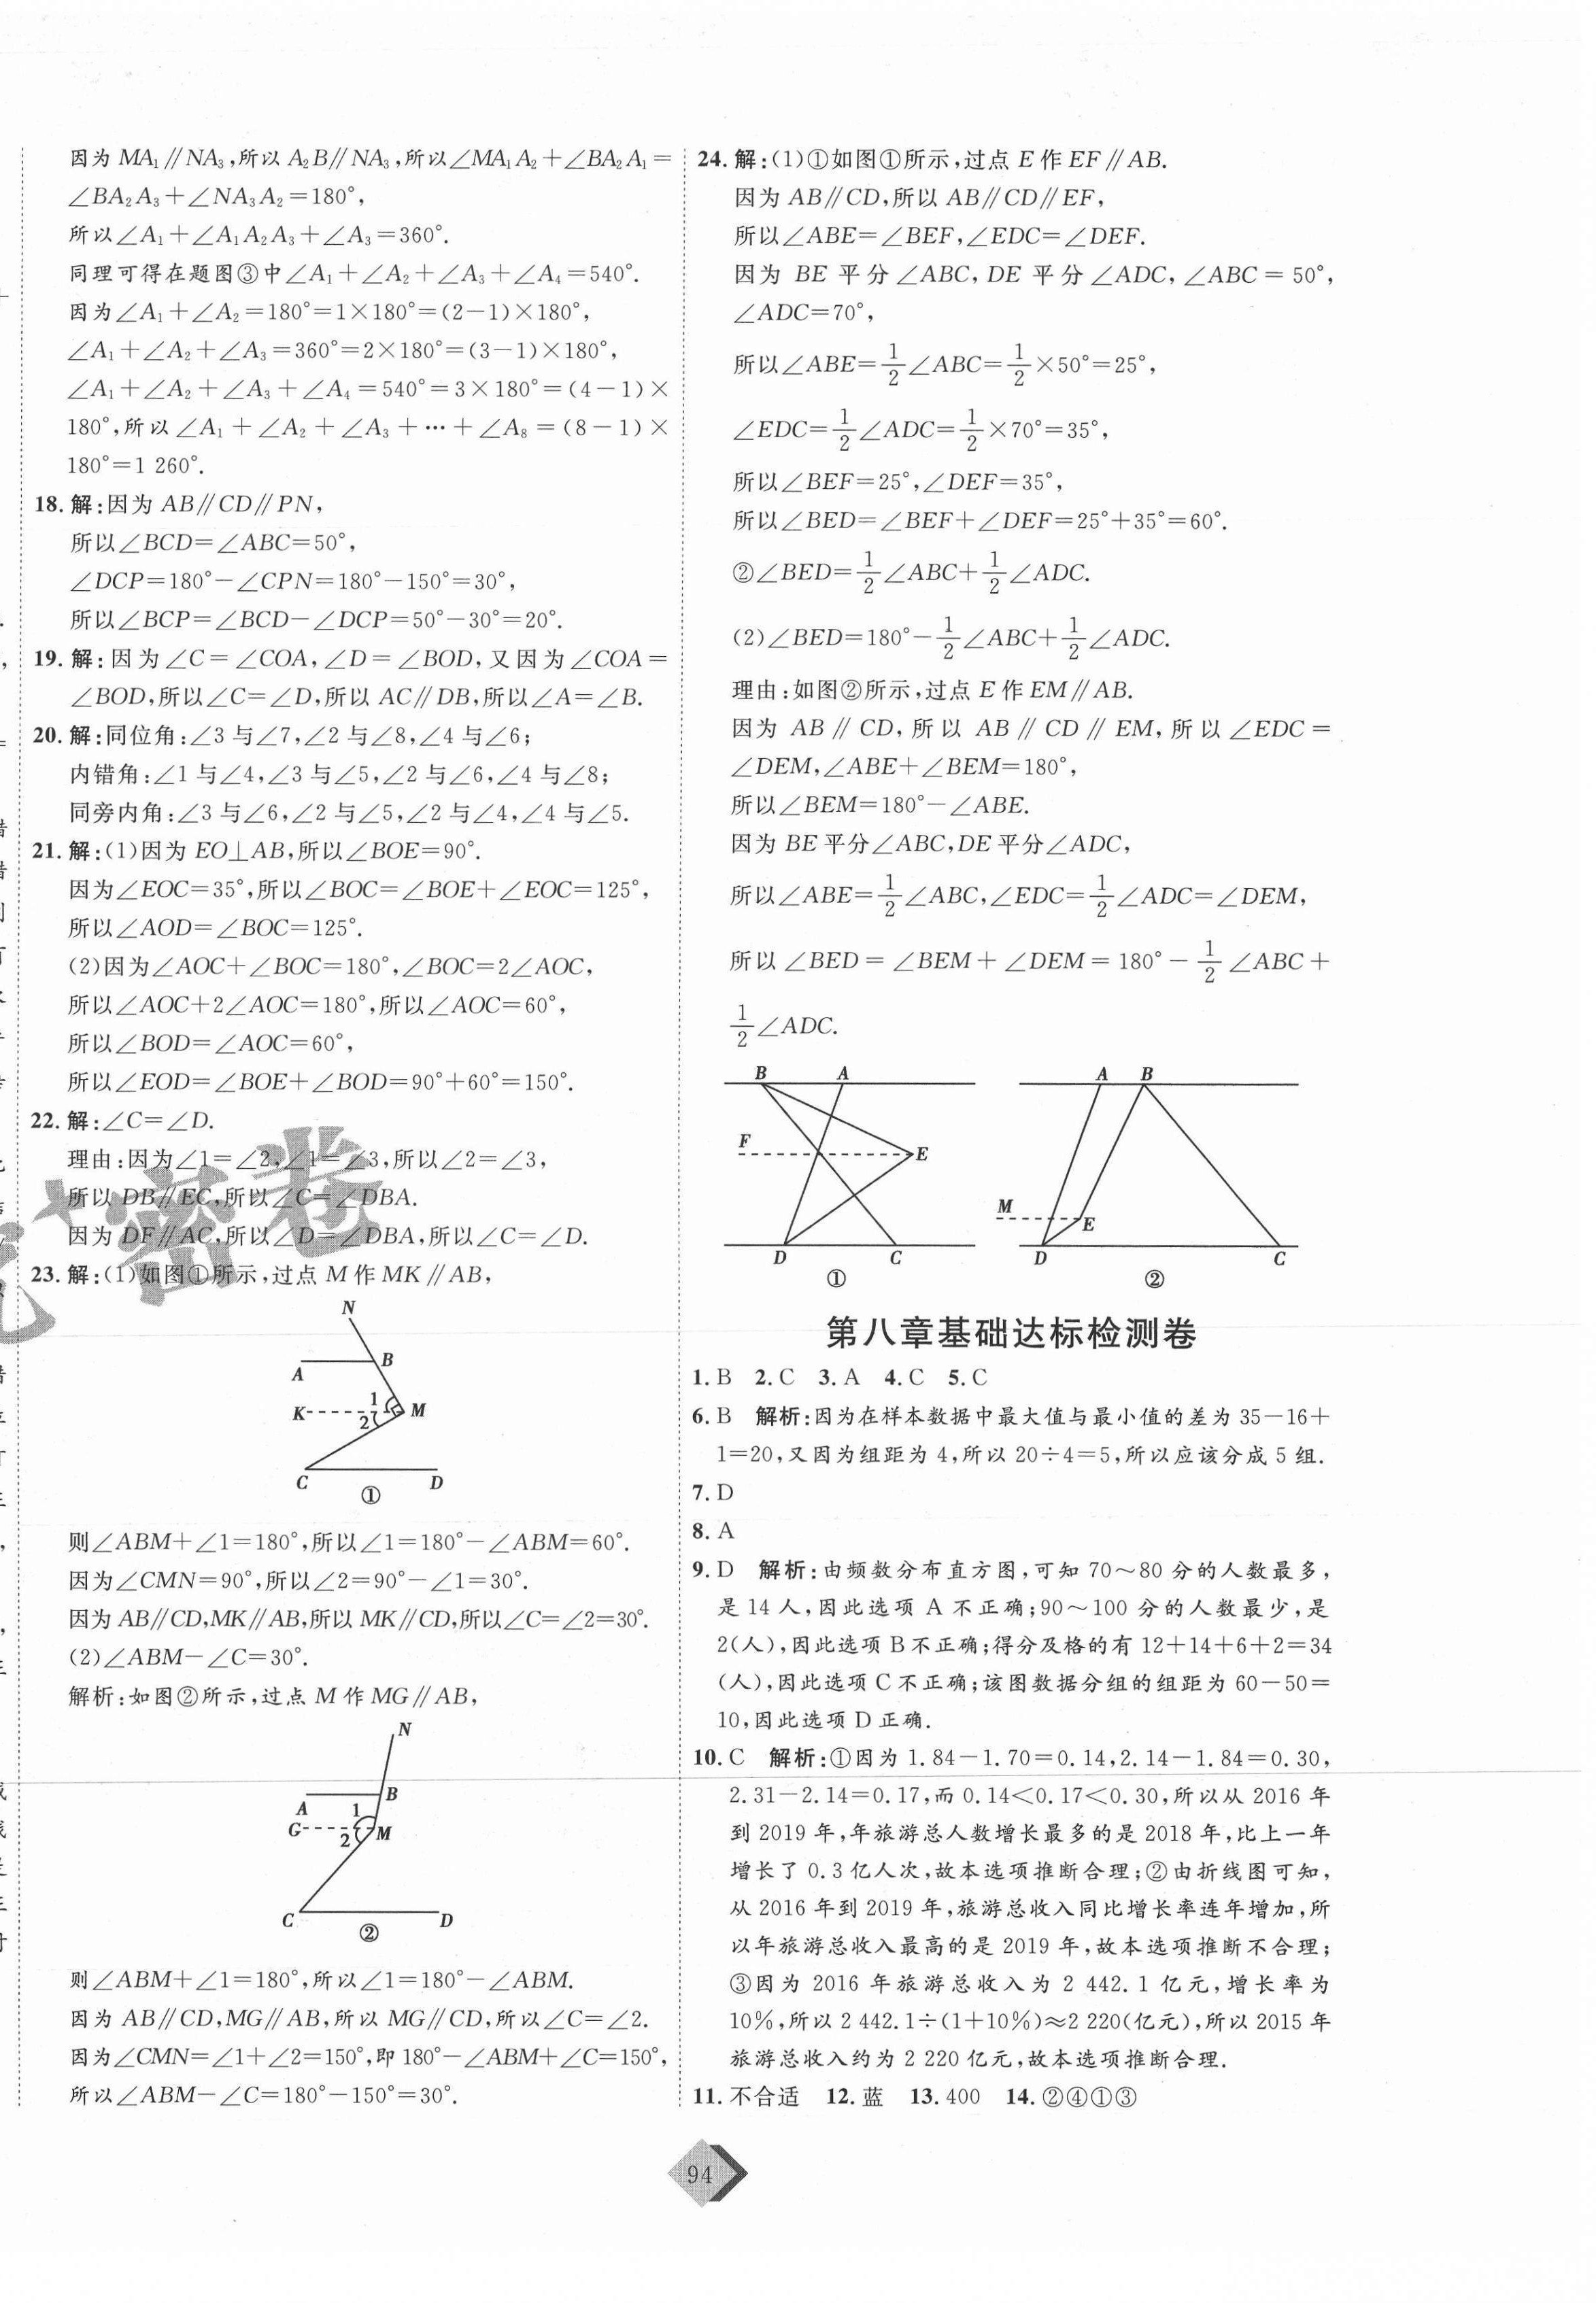 因为 MA₁∥NA₃,所以 A₂B∥NA₃,所以∠MA₁A₂+∠BA₂A₁=
∠BA₂A₃+∠NA₃A₂=180°,
所以∠A₁+∠A₁A₂A₃+∠A₃=360°.
同理可得在题图③中∠A₁+∠A₂+∠A₃+∠A₄=540°.
因为∠A₁+∠A₂=180°=1×180°=(2-1)×180°,
∠A₁+∠A₂+∠A₃=360°=2×180°=(3-1)×180°,
∠A₁+∠A₂+∠A₃+∠A₄=540°=3×180°=(4-1)×
180°,所以∠A₁+∠A₂+∠A₃+⋯+∠A₈=(8-1)×
180°=1 260°.
18. 解:因为 AB∥CD∥PN,
所以∠BCD=∠ABC=50°,
∠DCP=180°-∠CPN=180°-150°=30°,
所以∠BCP=∠BCD-∠DCP=50°-30°=20°.
19. 解:因为∠C=∠COA,∠D=∠BOD,又因为∠COA=
∠BOD,所以∠C=∠D,所以 AC∥DB,所以∠A=∠B.
20. 解:同位角:∠3与∠7,∠2与∠8,∠4与∠6;
内错角:∠1与∠4,∠3与∠5,∠2与∠6,∠4与∠8;
同旁内角:∠3与∠6,∠2与∠5,∠2与∠4,∠4与∠5.
21. 解:(1)因为 EO⊥AB,所以∠BOE=90°.
因为∠EOC=35°,所以∠BOC=∠BOE+∠EOC=125°,
所以∠AOD=∠BOC=125°.
(2)因为∠AOC+∠BOC=180°,∠BOC=2∠AOC,
所以∠AOC+2∠AOC=180°,所以∠AOC=60°,
所以∠BOD=∠AOC=60°,
所以∠EOD=∠BOE+∠BOD=90°+60°=150°.
22. 解:∠C=∠D.
理由:因为∠1=∠2,∠1=∠3,所以∠2=∠3,
所以 DB∥EC,所以∠C=∠DBA.
因为 DF∥AC,所以∠D=∠DBA,所以∠C=∠D.
密卷
23. 解:(1)如图①所示,过点 M 作 MK∥AB,
N
A B
1
K M
2
C D
①
则∠ABM+∠1=180°,所以∠1=180°-∠ABM=60°.
因为∠CMN=90°,所以∠2=90°-∠1=30°.
因为 AB∥CD,MK∥AB,所以 MK∥CD,所以∠C=∠2=30°.
(2)∠ABM-∠C=30°.
解析:如图②所示,过点 M 作 MG∥AB,
N
A B
1
G M
2
C D
②
则∠ABM+∠1=180°,所以∠1=180°-∠ABM.
因为 AB∥CD,MG∥AB,所以 MG∥CD,所以∠C=∠2.
因为∠CMN=∠1+∠2=150°,即 180°-∠ABM+∠C=150°,
所以∠ABM-∠C=180°-150°=30°.
24. 解:(1)①如图①所示,过点 E 作 EF∥AB.
因为 AB∥CD,所以 AB∥CD∥EF,
所以∠ABE=∠BEF,∠EDC=∠DEF.
因为 BE 平分∠ABC,DE 平分∠ADC,∠ABC=50°,
∠ADC=70°,
所以∠ABE=1/2∠ABC=1/2×50°=25°,
∠EDC=1/2∠ADC=1/2×70°=35°,
所以∠BEF=25°,∠DEF=35°,
所以∠BED=∠BEF+∠DEF=25°+35°=60°.
②∠BED=1/2∠ABC+1/2∠ADC.
(2)∠BED=180°-1/2∠ABC+1/2∠ADC.
理由:如图②所示,过点 E 作 EM∥AB.
因为 AB∥CD,所以 AB∥CD∥EM,所以∠EDC=
∠DEM,∠ABE+∠BEM=180°,
所以∠BEM=180°-∠ABE.
因为 BE 平分∠ABC,DE 平分∠ADC,
所以∠ABE=1/2∠ABC,∠EDC=1/2∠ADC=∠DEM,
所以∠BED=∠BEM+∠DEM=180°-1/2∠ABC+
1/2∠ADC.
B A
F E
D C
①
A B
M E
D C
②
第八章基础达标检测卷
1. B 2. C 3. A 4. C 5. C
6. B 解析:因为在样本数据中最大值与最小值的差为 35-16+
1=20,又因为组距为 4,所以 20÷4=5,所以应该分成 5 组.
7. D
8. A
9. D 解析:由频数分布直方图,可知 70~80 分的人数最多,
是 14 人,因此选项 A 不正确;90~100 分的人数最少,是
2(人),因此选项 B 不正确;得分及格的有 12+14+6+2=34
(人),因此选项 C 不正确;该图数据分组的组距为 60-50=
10,因此选项 D 正确.
10. C 解析:①因为 1.84-1.70=0.14,2.14-1.84=0.30,
2.31-2.14=0.17,而 0.14<0.17<0.30,所以从 2016 年
到 2019 年,年旅游总人数增长最多的是 2018 年,比上一年
增长了 0.3 亿人次,故本选项推断合理;②由折线图可知,
从 2016 年到 2019 年,旅游总收入同比增长率连年增加,所
以年旅游总收入最高的是 2019 年,故本选项推断不合理;
③因为 2016 年旅游总收入为 2 442.1 亿元,增长率为
10%,所以 2 442.1÷(1+10%)≈2 220(亿元),所以 2015 年
旅游总收入约为 2 220 亿元,故本选项推断合理.
11. 不合适 12. 蓝 13. 400 14. ②④①③
94